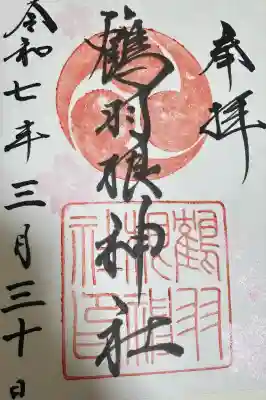 奉拝
鶴羽根神社
令和七年三月三十日
鶴羽根神社印